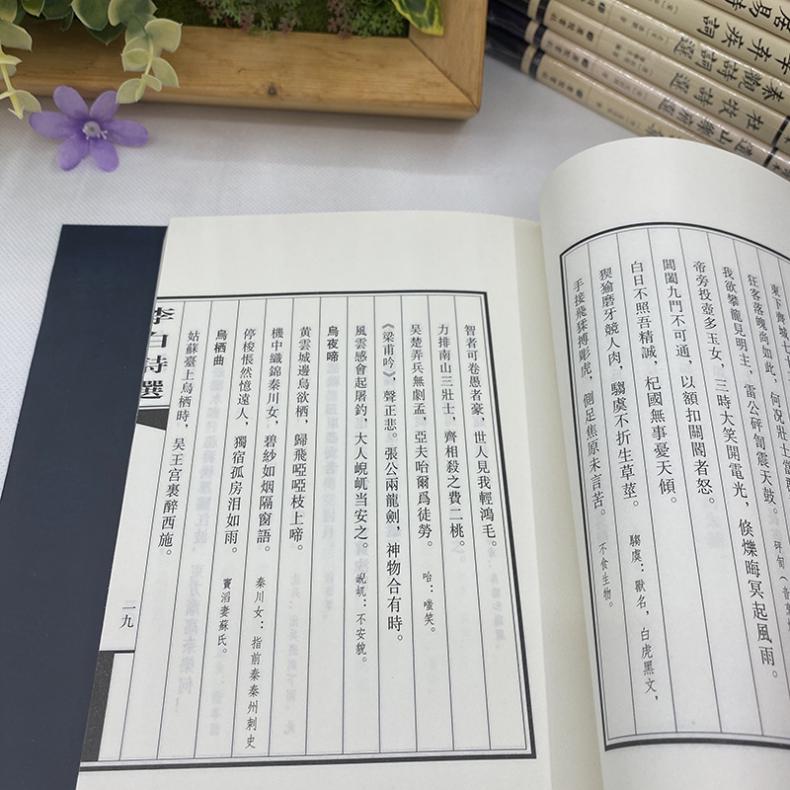 狂客落魄尚如此，何況壯士當群
我欲攀龍見明主，雷公砰訇震天鼓。 砰訇（音
帝旁投壺多玉女，三時大笑開電光，倏爍晦冥起風雨。
閶闔九門不可通，以額扣關閽者怒。
白日不照吾精誠，杞國無事憂天傾。
猰貐磨牙競人肉，騶虞不折生草莖。 騶虞：獸名，白虎黑文，
手接飛猱搏彫虎，側足焦原未言苦。 不食生物。
智者可卷愚者豪，世人見我輕鴻毛。
力排南山三壯士，齊相殺之費二桃。
吳楚弄兵無劇孟，亞夫咍爾爲徒勞。 咍：嗤笑。
《梁甫吟》，聲正悲。張公兩龍劍，神物合有時。
風雲感會起屠釣，大人𡸣屼当安之。 𡸣屼：不安貌。
烏夜啼
黃雲城邊烏欲栖，歸飛啞啞枝上啼。
機中織錦秦川女，碧紗如烟隔窗語。 秦川女：指前秦秦州刺史
停梭悵然憶遠人，獨宿孤房泪如雨。 竇滔妻蘇氏。
烏栖曲
姑蘇臺上烏栖時，吴王宫裏醉西施。
李白詩選
二九